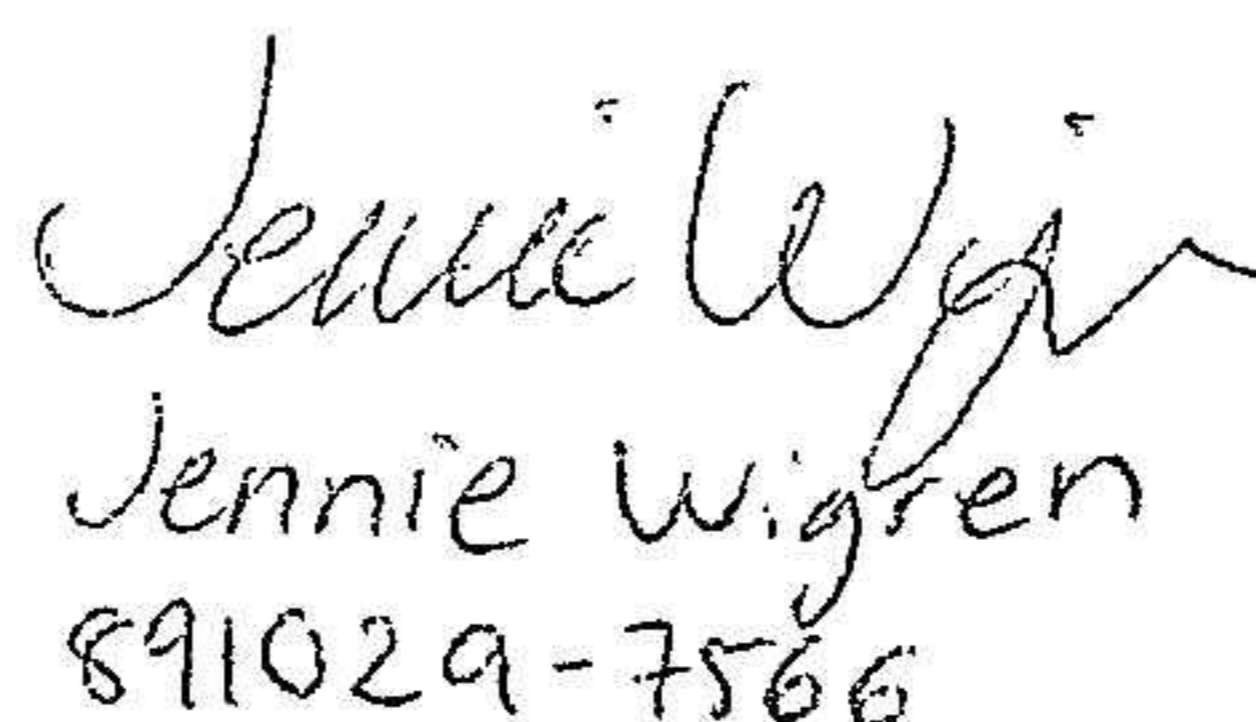 Jennie Wigren
Jennie Wigren
891029-7566